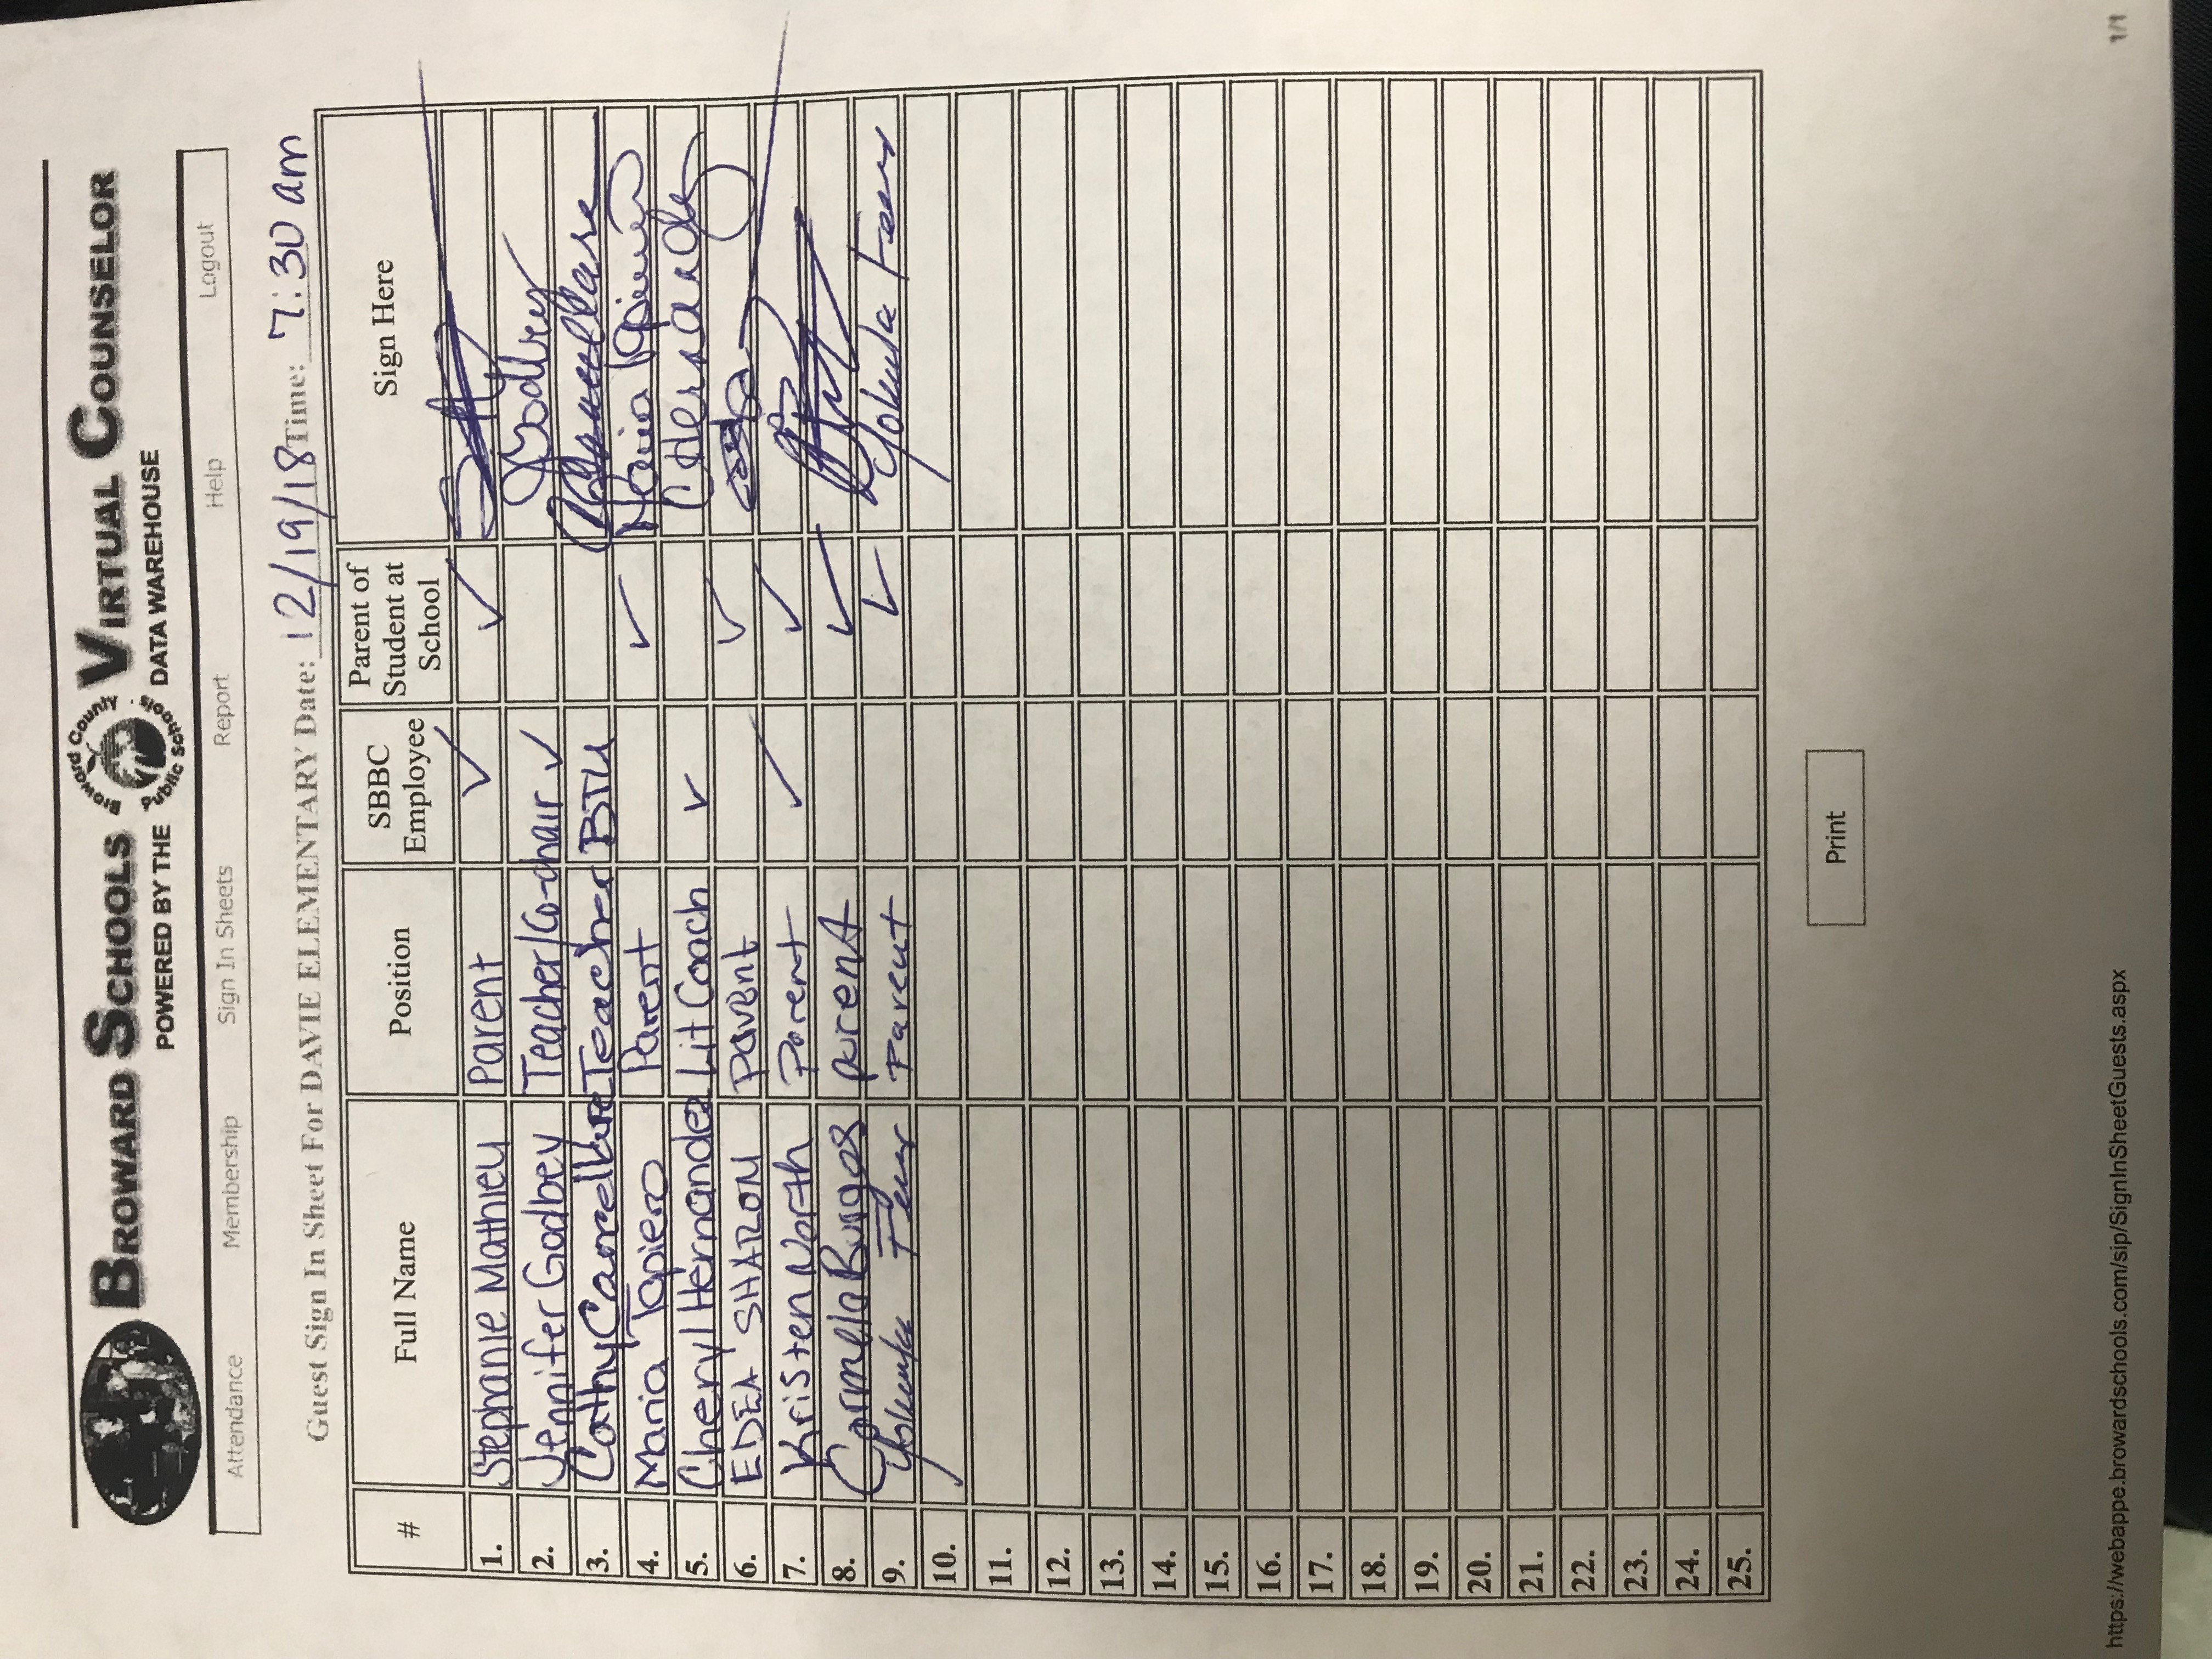 BROWARD SCHOOLS VIRTUAL COUNSELOR
Broward County Public Schools
POWERED BY THE DATA WAREHOUSE
Attendance Membership Sign In Sheets Report Help Logout
Guest Sign In Sheet For DAVIE ELEMENTARY Date: 12/19/18 Time: 7:30 am
# Full Name Position SBBC Employee Parent of Student at School Sign Here
1. Stephanie Mathieu Parent ✓ ✓
2. Jennifer Godbey Teacher/Co-chair ✓ JGodbey
3. Cathy Teacher BTU
4. Maria Tapiero Parent ✓ Maria Tapiero
5. Cheryl Hernandez Lit Coach ✓ CHernandez
6. EDEA SHARON Parent ✓
7. Kristen North Parent ✓ ✓
8. Burgos parent ✓
9. Parent ✓
10.
11.
12.
13.
14.
15.
16.
17.
18.
19.
20.
21.
22.
23.
24.
25.
Print
https://webappe.browardschools.com/sip/SignInSheetGuests.aspx 1/1